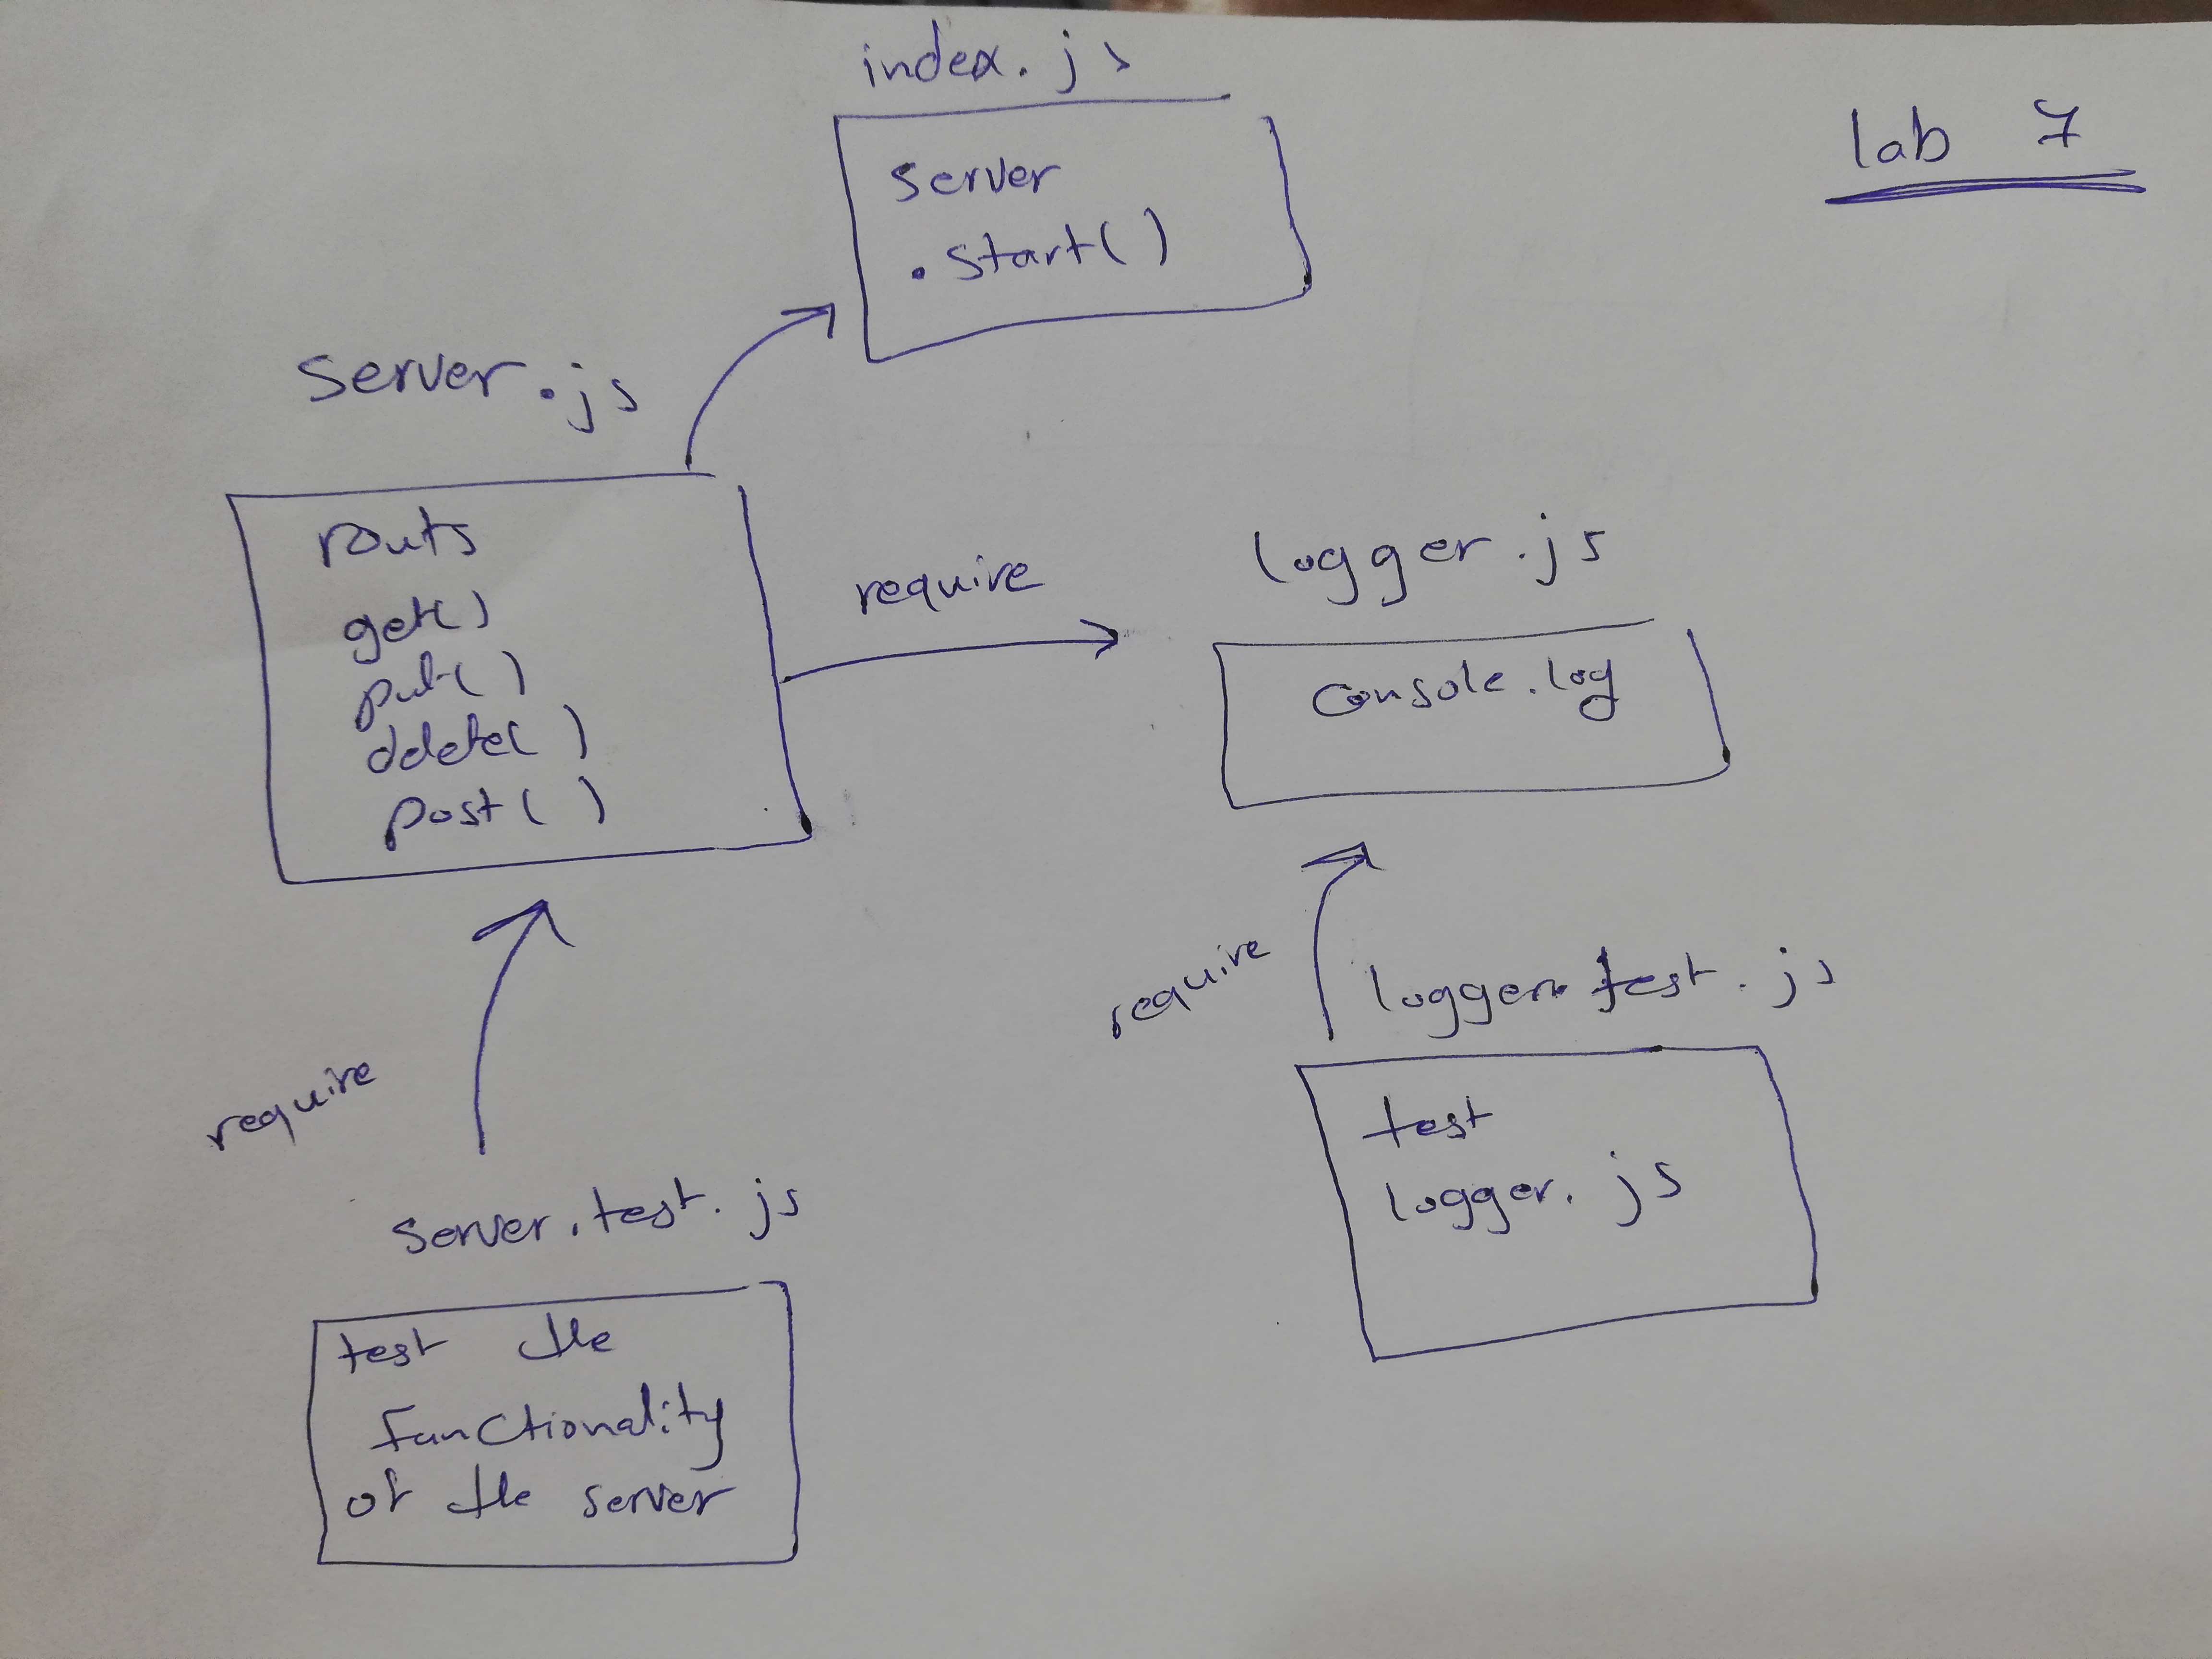 index.js
lab 7
server
.start()
server.js
routs
get()
put()
delete()
post()
require
logger.js
console.log
require
logger.test.js
test
logger.js
require
server.test.js
test the
functionality
of the server